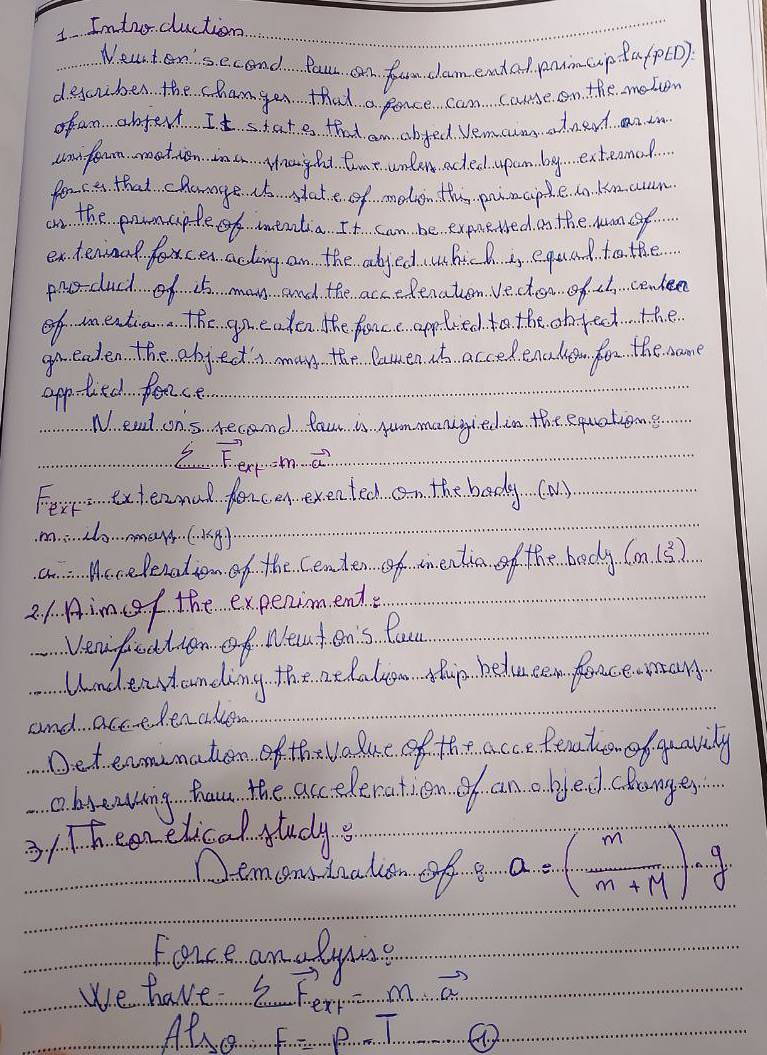 1- Introduction
Newton's second law or fundamental principla (PLD):
describes the changes that a force can cause on the motion
of an abject It states that an abject remains at rest or in
uniform motion in a straight line unless acted upon by external
forces that change its state of motion this principle is known
as the principle of inertia It can be expressed as the sum of
external forces acting on the abject which is equal to the
product of its mass and the acceleration vector of its center
of inertia. The greater the force applied to the object the
greater the abject's mass the lawer its acceleration for the same
applied force
Newton's second law is summarigied in the equation:
Σ F⃗ext = m a⃗
Fext = external forces exerted on the body (N)
m = its mass (kg)
a = Acceleration of the center of inertia of the body (m/s²)
2/ Aim of the experiment:
- Verification of Newton's law
- Understanding the relation ship between force mass
and acceleration
- Determination of the value of the acceleration of gravity
- observing how the acceleration of an object changes
3/ Theoretical study:
Demonstration of : a = (m / m + M) . g
Force analysis:
We have = Σ F⃗ext = m a⃗
Also F = P - T ---- ①